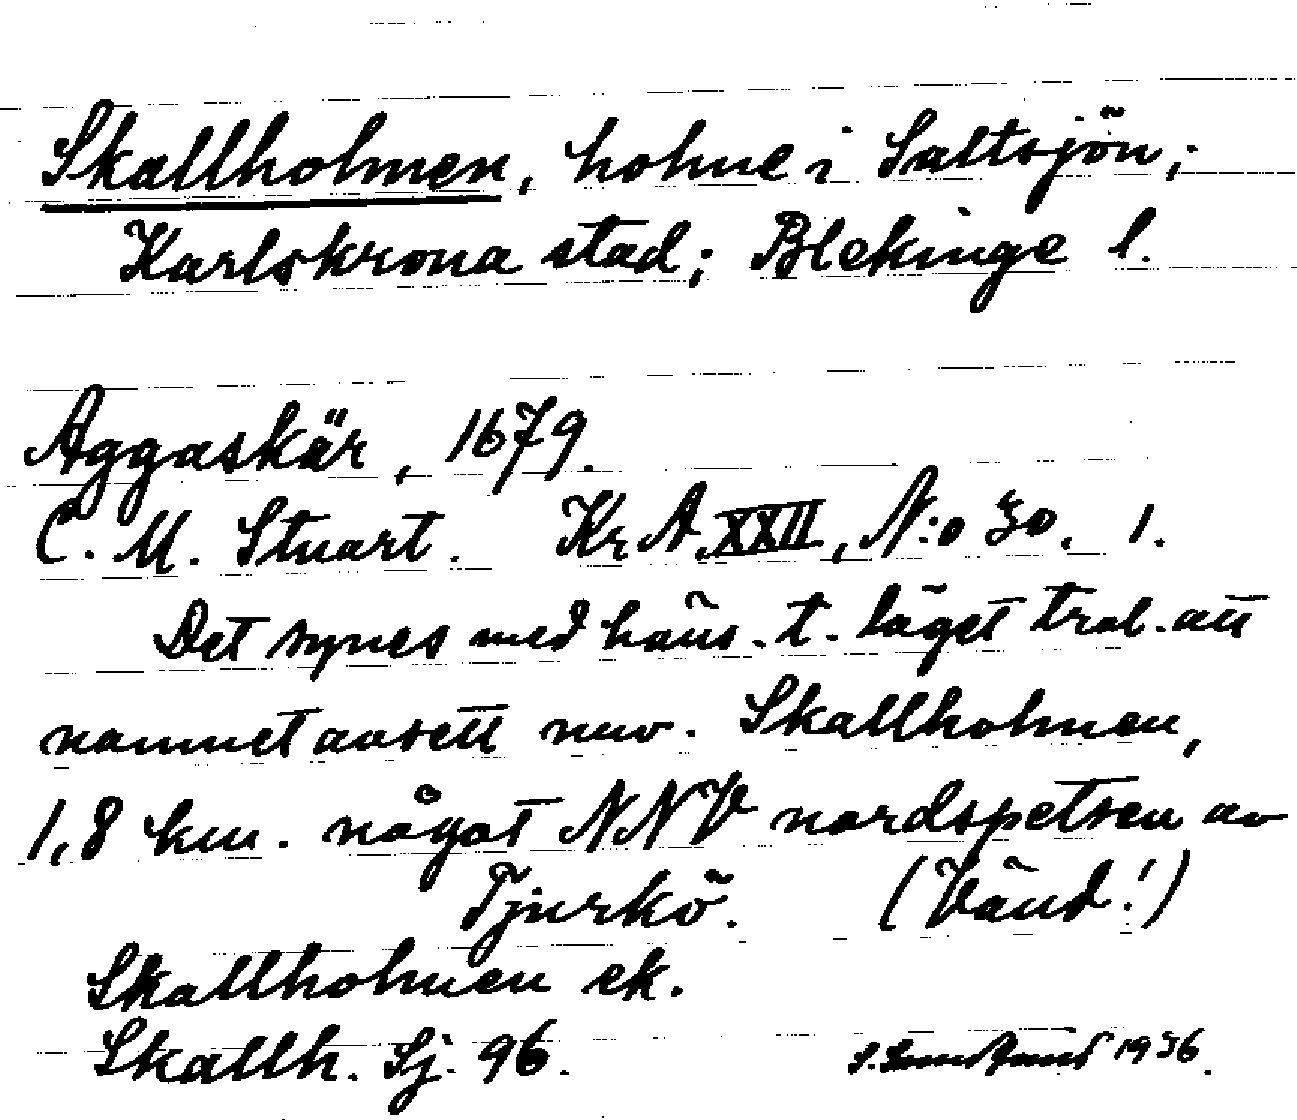 Skallholmen, holme i Saltsjön;
Karlskrona stad; Blekinge l.
Aggaskär, 1679.
C. M. Stuart. Kr A. XXII, N:o 30. 1.
Det synes med häns. t. läget trol. att
namnet avsett nuv. Skallholmen,
1,8 km. något NNV nordspetsen av
Tjurkö. (Vänd!)
Skallholmen ek.
Skallh. Sj. 96.
1936.